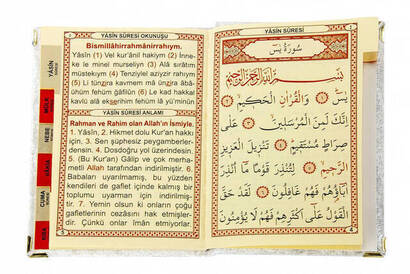 YÂSÎN SÛRESİ OKUNUŞU
Bismillâhirrahmânirrahıym.
Yâsîn (1) Vel kur'ânil hakiym (2) İnne-
ke le minel murseliyn (3) Alâ sırâtım
müstekıym (4) Tenziylel aziyzir rahıym
(5) Li tünzira kavmem mâ ünzira âbâ-
ühüm fehüm ğâfilûn (6) Le kad hakkal
kavlü alâ ekserihim fehüm lâ yü'minûn
YÂSÎN SÛRESİ ANLAMI
Rahman ve Rahim olan Allah'ın İsmiyle.
1. Yâsîn, 2. Hikmet dolu Kur'an hakkı
için, 3. Sen şüphesiz peygamberler-
densin. 4. Dosdoğru yol üzerindesin.
5. (Bu Kur'an) Gâlip ve çok merha-
metli Allah tarafından indirilmiştir. 6.
Babaları uyarılmamış, bu yüzden
kendileri de gaflet içinde kalmış bir
toplumu uyarman için indirilmiş-
tir. 7. Yemin olsun ki onların çoğu
gafletlerinin cezâsını hak etmişler-
dir. Çünkü onlar îmân etmiyorlar.
YÂSÎN
MÜLK
NEBE
VÂKIA
CUMA
KISA
YÂSÎN SÛRESİ
سُورَةُ يٰسٓ
بِسْمِ اللّٰهِ الرَّحْمٰنِ الرَّحِيمِ
يٰسٓ ۝ وَالْقُرْاٰنِ الْحَكِيمِ ۝
اِنَّكَ لَمِنَ الْمُرْسَلِينَ ۝ عَلٰى
صِرَاطٍ مُسْتَقِيمٍ ۝ تَنْزِيلَ الْعَزِيزِ
الرَّحِيمِ ۝ لِتُنْذِرَ قَوْمًا مَٓا اُنْذِرَ
اٰبَٓاؤُهُمْ فَهُمْ غَافِلُونَ ۝ لَقَدْ حَقَّ
الْقَوْلُ عَلٰٓى اَكْثَرِهِمْ فَهُمْ لَا يُؤْمِنُونَ